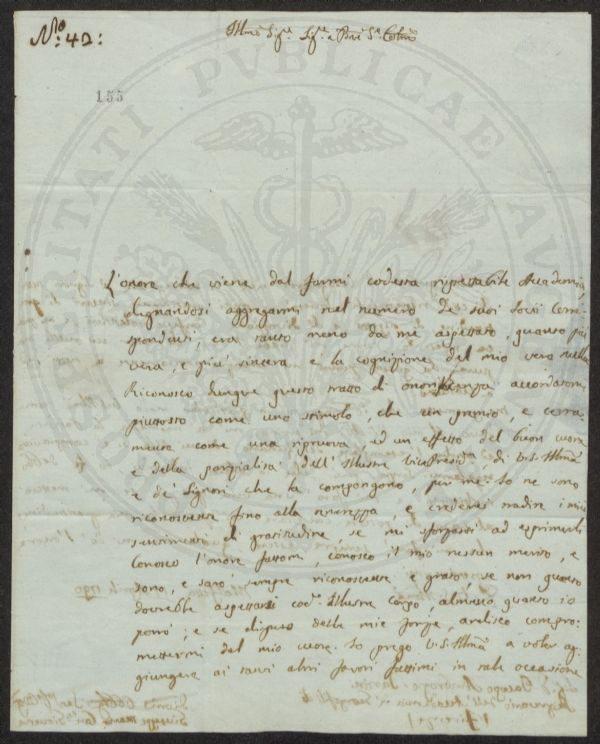 N.ro 42:
Illmo Sig.re Sig.re e Pne
155
PVBLICAE
L'onore che viene dal farmi codesta rispettabile Accademia,
degnandosi aggregarmi nel numero de' suoi Socii Corri-
spondenti, era tanto meno da me aspettato, quanto più
vera, e più sincera è la cognizione del mio vero nulla
Riconosco dunque questo tratto di onorificenza accordatami
piuttosto come uno stimolo, che un premio, e certa-
mente come una riprova ed un effetto del buon cuore
e della parzialità dell' Illustre Vice Presid.te, di V.S. Illma
e de' Signori che la compongono, per me: Io ne sono
riconoscente fino alla tenerezza, e crederei tradire i miei
sentimenti di gratitudine, se mi sforzassi ad esprimerli
Conosco l'onore fattomi, conosco il mio nessun merito, e
sono, e sarò sempre riconoscente e grato, se non quanto
dovrebbe aspettarsi cod.o Illustre Corpo, almeno quanto io
potrò; e se dispero delle mie forze, ardisco compro-
mettermi del mio cuore. Io prego V.S. Illma a voler ag-
giungere ai tanti altri favori fattimi in tale occasione